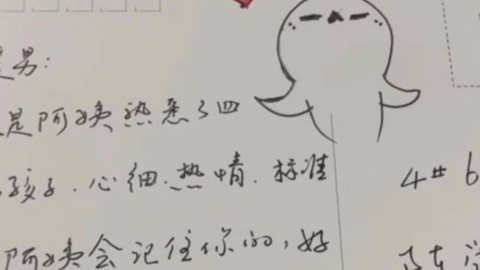 男:
是阿姨熟悉了四
孩子.心细.热情.标准
阿姨会记住你的,好
4# 6